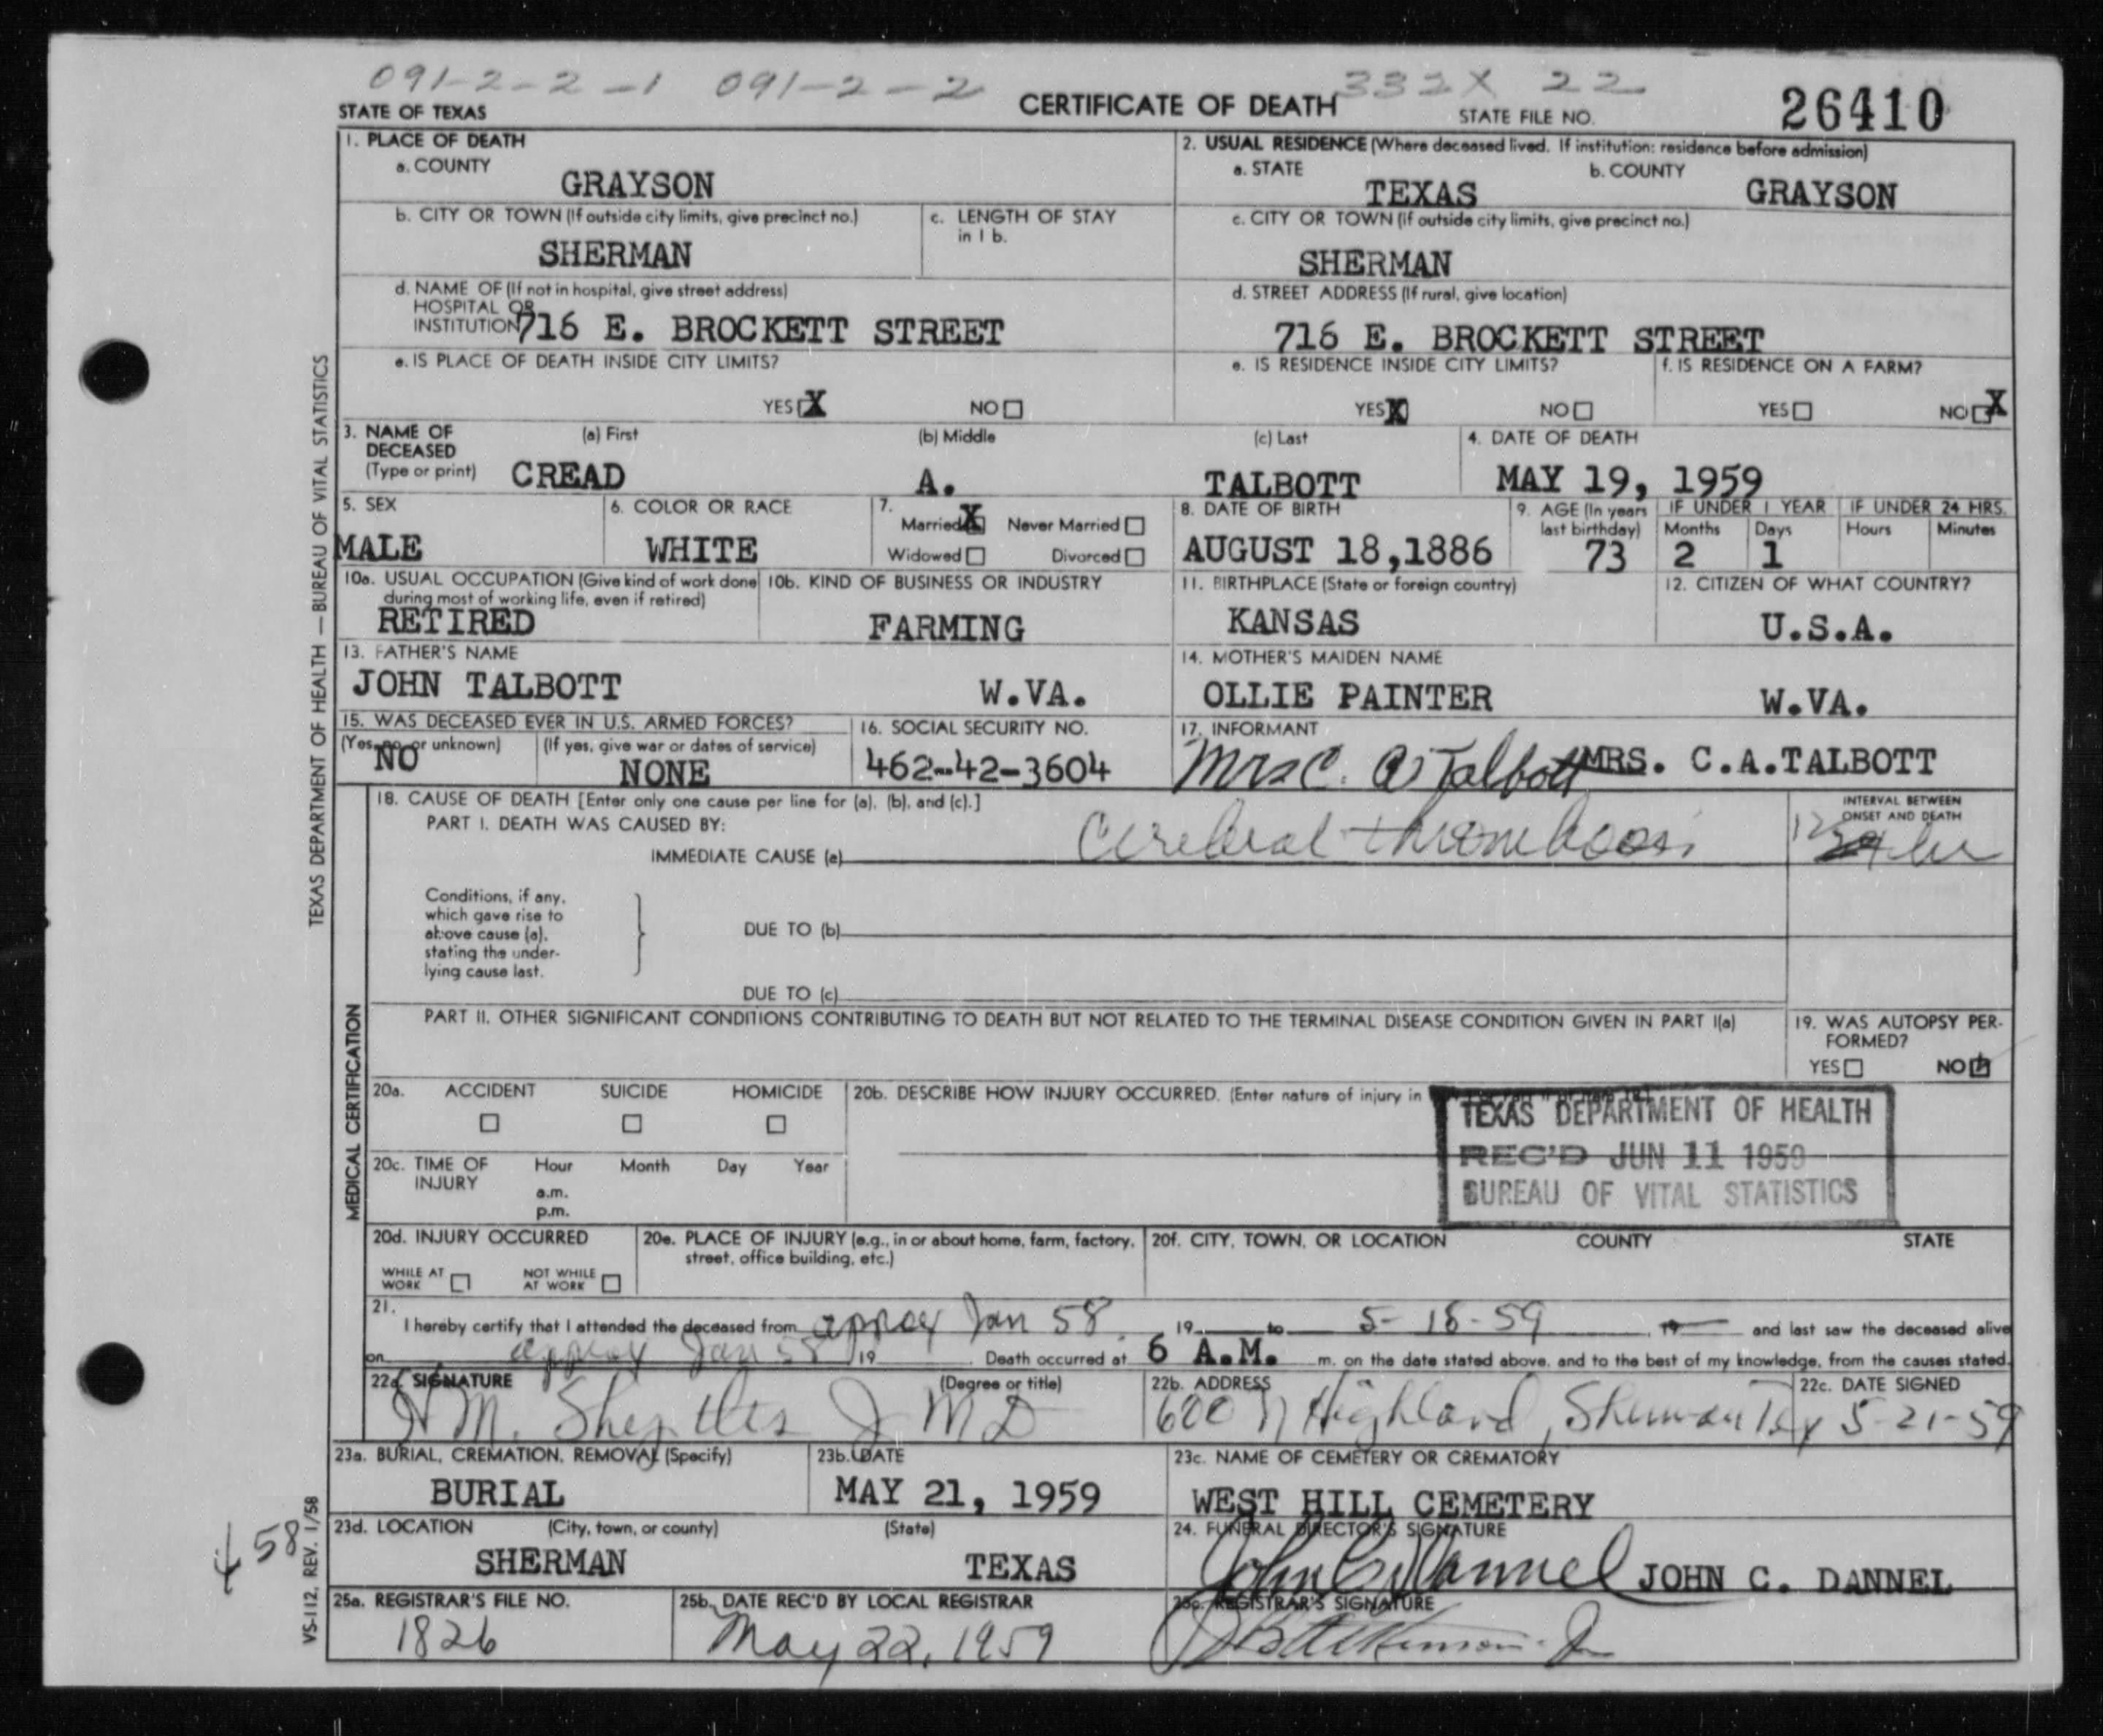 091-2-2-1 091-2-2 332X 22
STATE OF TEXAS CERTIFICATE OF DEATH STATE FILE NO. 26410
TEXAS DEPARTMENT OF HEALTH — BUREAU OF VITAL STATISTICS
1. PLACE OF DEATH
a. COUNTY
GRAYSON
2. USUAL RESIDENCE (Where deceased lived. If institution: residence before admission)
a. STATE b. COUNTY
TEXAS GRAYSON
b. CITY OR TOWN (If outside city limits, give precinct no.)
SHERMAN
c. LENGTH OF STAY
in 1 b.
c. CITY OR TOWN (If outside city limits, give precinct no.)
SHERMAN
d. NAME OF (If not in hospital, give street address)
HOSPITAL OR
INSTITUTION 716 E. BROCKETT STREET
d. STREET ADDRESS (If rural, give location)
716 E. BROCKETT STREET
e. IS PLACE OF DEATH INSIDE CITY LIMITS?
YES X NO
e. IS RESIDENCE INSIDE CITY LIMITS?
YES X NO
f. IS RESIDENCE ON A FARM?
YES NO X
3. NAME OF DECEASED (Type or print)
(a) First (b) Middle (c) Last
CREAD A. TALBOTT
4. DATE OF DEATH
MAY 19, 1959
5. SEX
MALE
6. COLOR OR RACE
WHITE
7.
Married X Never Married
Widowed Divorced
8. DATE OF BIRTH
AUGUST 18,1886
9. AGE (In years
last birthday)
73
IF UNDER 1 YEAR IF UNDER 24 HRS.
Months Days Hours Minutes
2 1
10a. USUAL OCCUPATION (Give kind of work done
during most of working life, even if retired)
RETIRED
10b. KIND OF BUSINESS OR INDUSTRY
FARMING
11. BIRTHPLACE (State or foreign country)
KANSAS
12. CITIZEN OF WHAT COUNTRY?
U.S.A.
13. FATHER'S NAME
JOHN TALBOTT W.VA.
14. MOTHER'S MAIDEN NAME
OLLIE PAINTER W.VA.
15. WAS DECEASED EVER IN U.S. ARMED FORCES?
(Yes, no, or unknown) (If yes, give war or dates of service)
NO NONE
16. SOCIAL SECURITY NO.
462-42-3604
17. INFORMANT
Mrs C. A Talbott MRS. C.A.TALBOTT
MEDICAL CERTIFICATION
18. CAUSE OF DEATH [Enter only one cause per line for (a), (b), and (c).]
PART I. DEATH WAS CAUSED BY:
IMMEDIATE CAUSE (a) Cerebral thrombosis
INTERVAL BETWEEN
ONSET AND DEATH
12 hr
Conditions, if any,
which gave rise to
above cause (a),
stating the under-
lying cause last.
DUE TO (b)
DUE TO (c)
PART II. OTHER SIGNIFICANT CONDITIONS CONTRIBUTING TO DEATH BUT NOT RELATED TO THE TERMINAL DISEASE CONDITION GIVEN IN PART I(a)
19. WAS AUTOPSY PER-
FORMED?
YES NO
20a. ACCIDENT SUICIDE HOMICIDE
20b. DESCRIBE HOW INJURY OCCURRED. (Enter nature of injury in
TEXAS DEPARTMENT OF HEALTH
REC'D JUN 11 1959
BUREAU OF VITAL STATISTICS
20c. TIME OF INJURY Hour Month Day Year
a.m.
p.m.
20d. INJURY OCCURRED
WHILE AT WORK NOT WHILE AT WORK
20e. PLACE OF INJURY (e.g., in or about home, farm, factory,
street, office building, etc.)
20f. CITY, TOWN, OR LOCATION COUNTY STATE
21.
I hereby certify that I attended the deceased from approx Jan 58 19 to 5-18-59, 19 and last saw the deceased alive
on approx Jan 58 19 . Death occurred at 6 A.M. m. on the date stated above, and to the best of my knowledge, from the causes stated.
22a. SIGNATURE (Degree or title)
H M. J MD
22b. ADDRESS
600 N Highland, Sherman Tex
22c. DATE SIGNED
5-21-59
23a. BURIAL, CREMATION, REMOVAL (Specify)
BURIAL
23b. DATE
MAY 21, 1959
23c. NAME OF CEMETERY OR CREMATORY
WEST HILL CEMETERY
23d. LOCATION (City, town, or county) (State)
SHERMAN TEXAS
24. FUNERAL DIRECTOR'S SIGNATURE
John C Dannel JOHN C. DANNEL
25a. REGISTRAR'S FILE NO.
1826
25b. DATE REC'D BY LOCAL REGISTRAR
May 22, 1959
25c. REGISTRAR'S SIGNATURE
58
VS-112, REV. 1/58